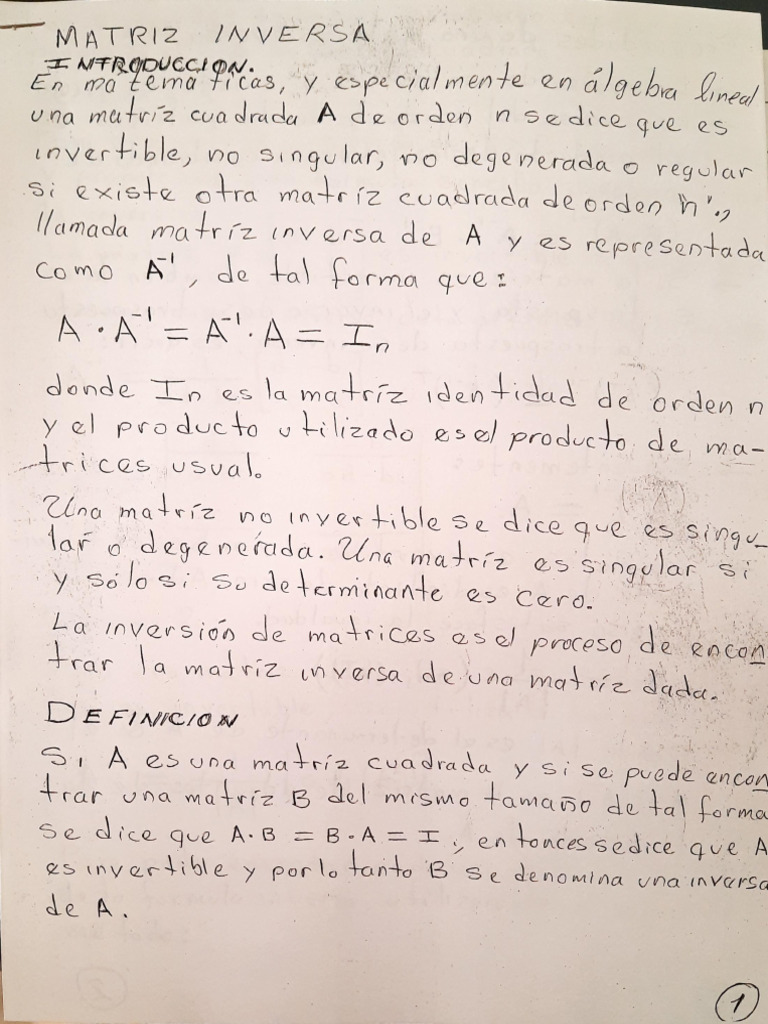 MATRIZ INVERSA
INTRODUCCION.
En matemáticas, y especialmente en álgebra lineal
una matríz cuadrada A de orden n se dice que es
invertible, no singular, no degenerada o regular
si existe otra matríz cuadrada de orden n',
llamada matríz inversa de A y es representada
como A⁻¹, de tal forma que:
A · A⁻¹ = A⁻¹ · A = Iₙ
donde In es la matríz identidad de orden n
y el producto utilizado es el producto de ma-
trices usual.
Una matríz no invertible se dice que es singu-
lar o degenerada. Una matríz es singular si
y sólo si su determinante es cero.
La inversión de matrices es el proceso de encon
trar la matríz inversa de una matríz dada.
DEFINICION
Si A es una matríz cuadrada y si se puede encon
trar una matríz B del mismo tamaño de tal forma
se dice que A·B = B·A = I, entonces se dice que A
es invertible y por lo tanto B se denomina una inversa
de A.
1